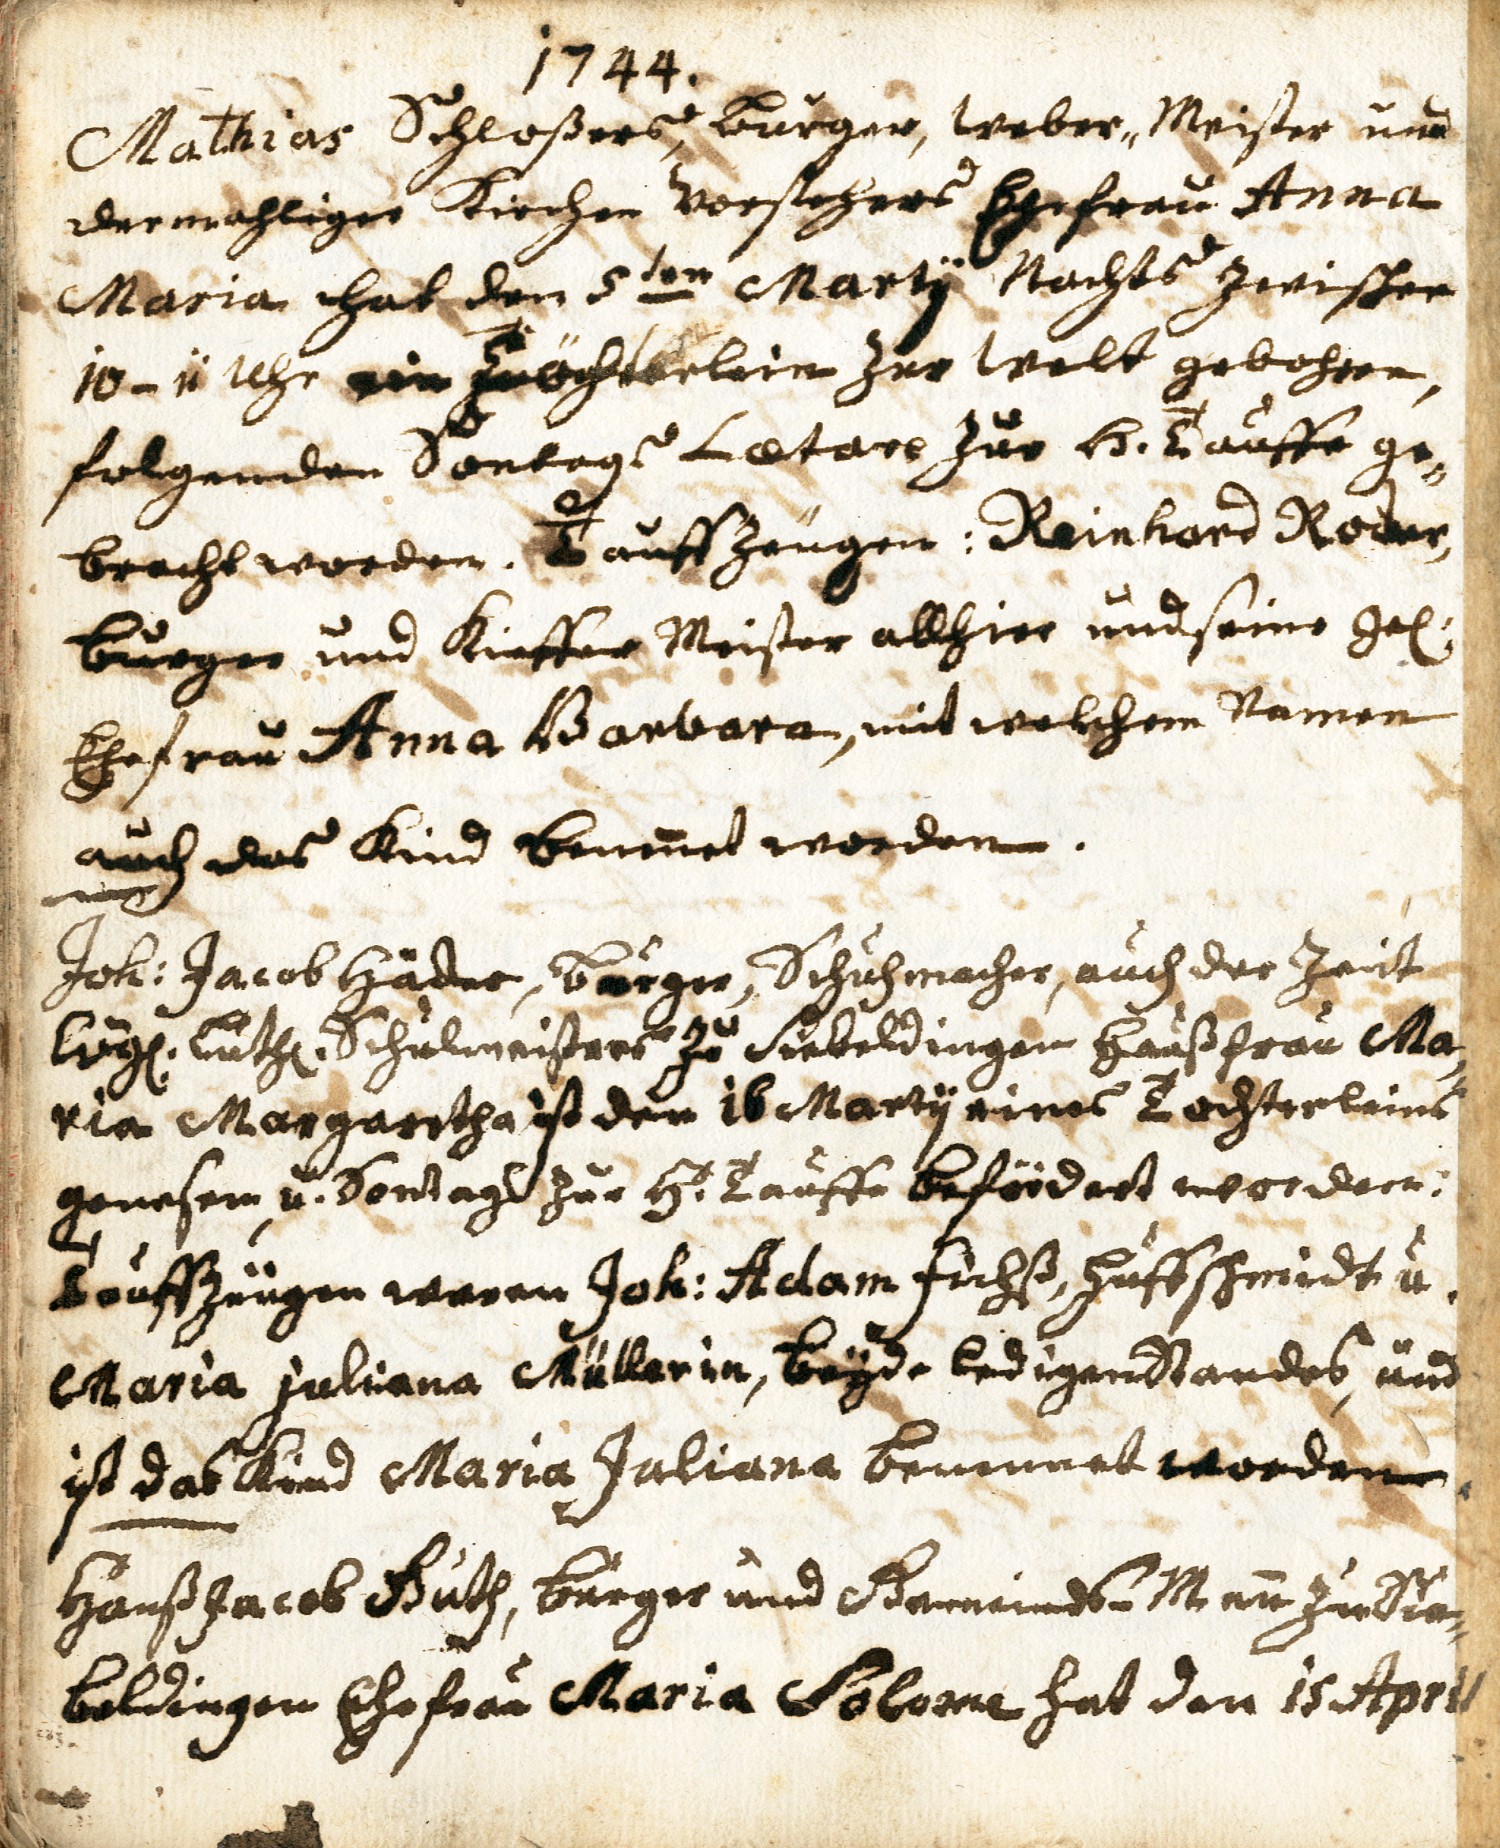 1744.
Mathias Schloßers, Burger, Weber„ Meister und
dermahliger Kirchen Vorstehers Ehefrau Anna
Maria hat den 8ten Martij Nachts zwischen
10-11 Uhr ein Töchterlein zur Welt gebohren,
folgenden Sontags Lætare zur H. Tauffe ge„
bracht worden. Tauffzeugen: Reinhard Roder,
Burger und Kieffer Meister allhier und seine
Ehefrau Anna Barbara, mit welchem Namen
auch das Kind benen̄et worden.
Joh: Jacob Häder, Burger, Schuhmacher, auch der Zeit
Luth. Schulmeisters zu Siebeldingen Haußfrau Ma„
ria Margaretha ist den 16 Martij eines Töchterleins
genesen, u. Sontags zur H. Tauffe befördert worden:
Tauffzeugen waren Joh: Adam Fuchß, Huffschmidt u.
Maria Juliana Müllerin, beÿde ledigen Standes, und
ist das Kind Maria Juliana benennet worden.
Hanß Jacob Guth, Burger und Gemeinds-Man̄ zu Sie„
beldingen Ehefrau Maria Salome hat den 15 April